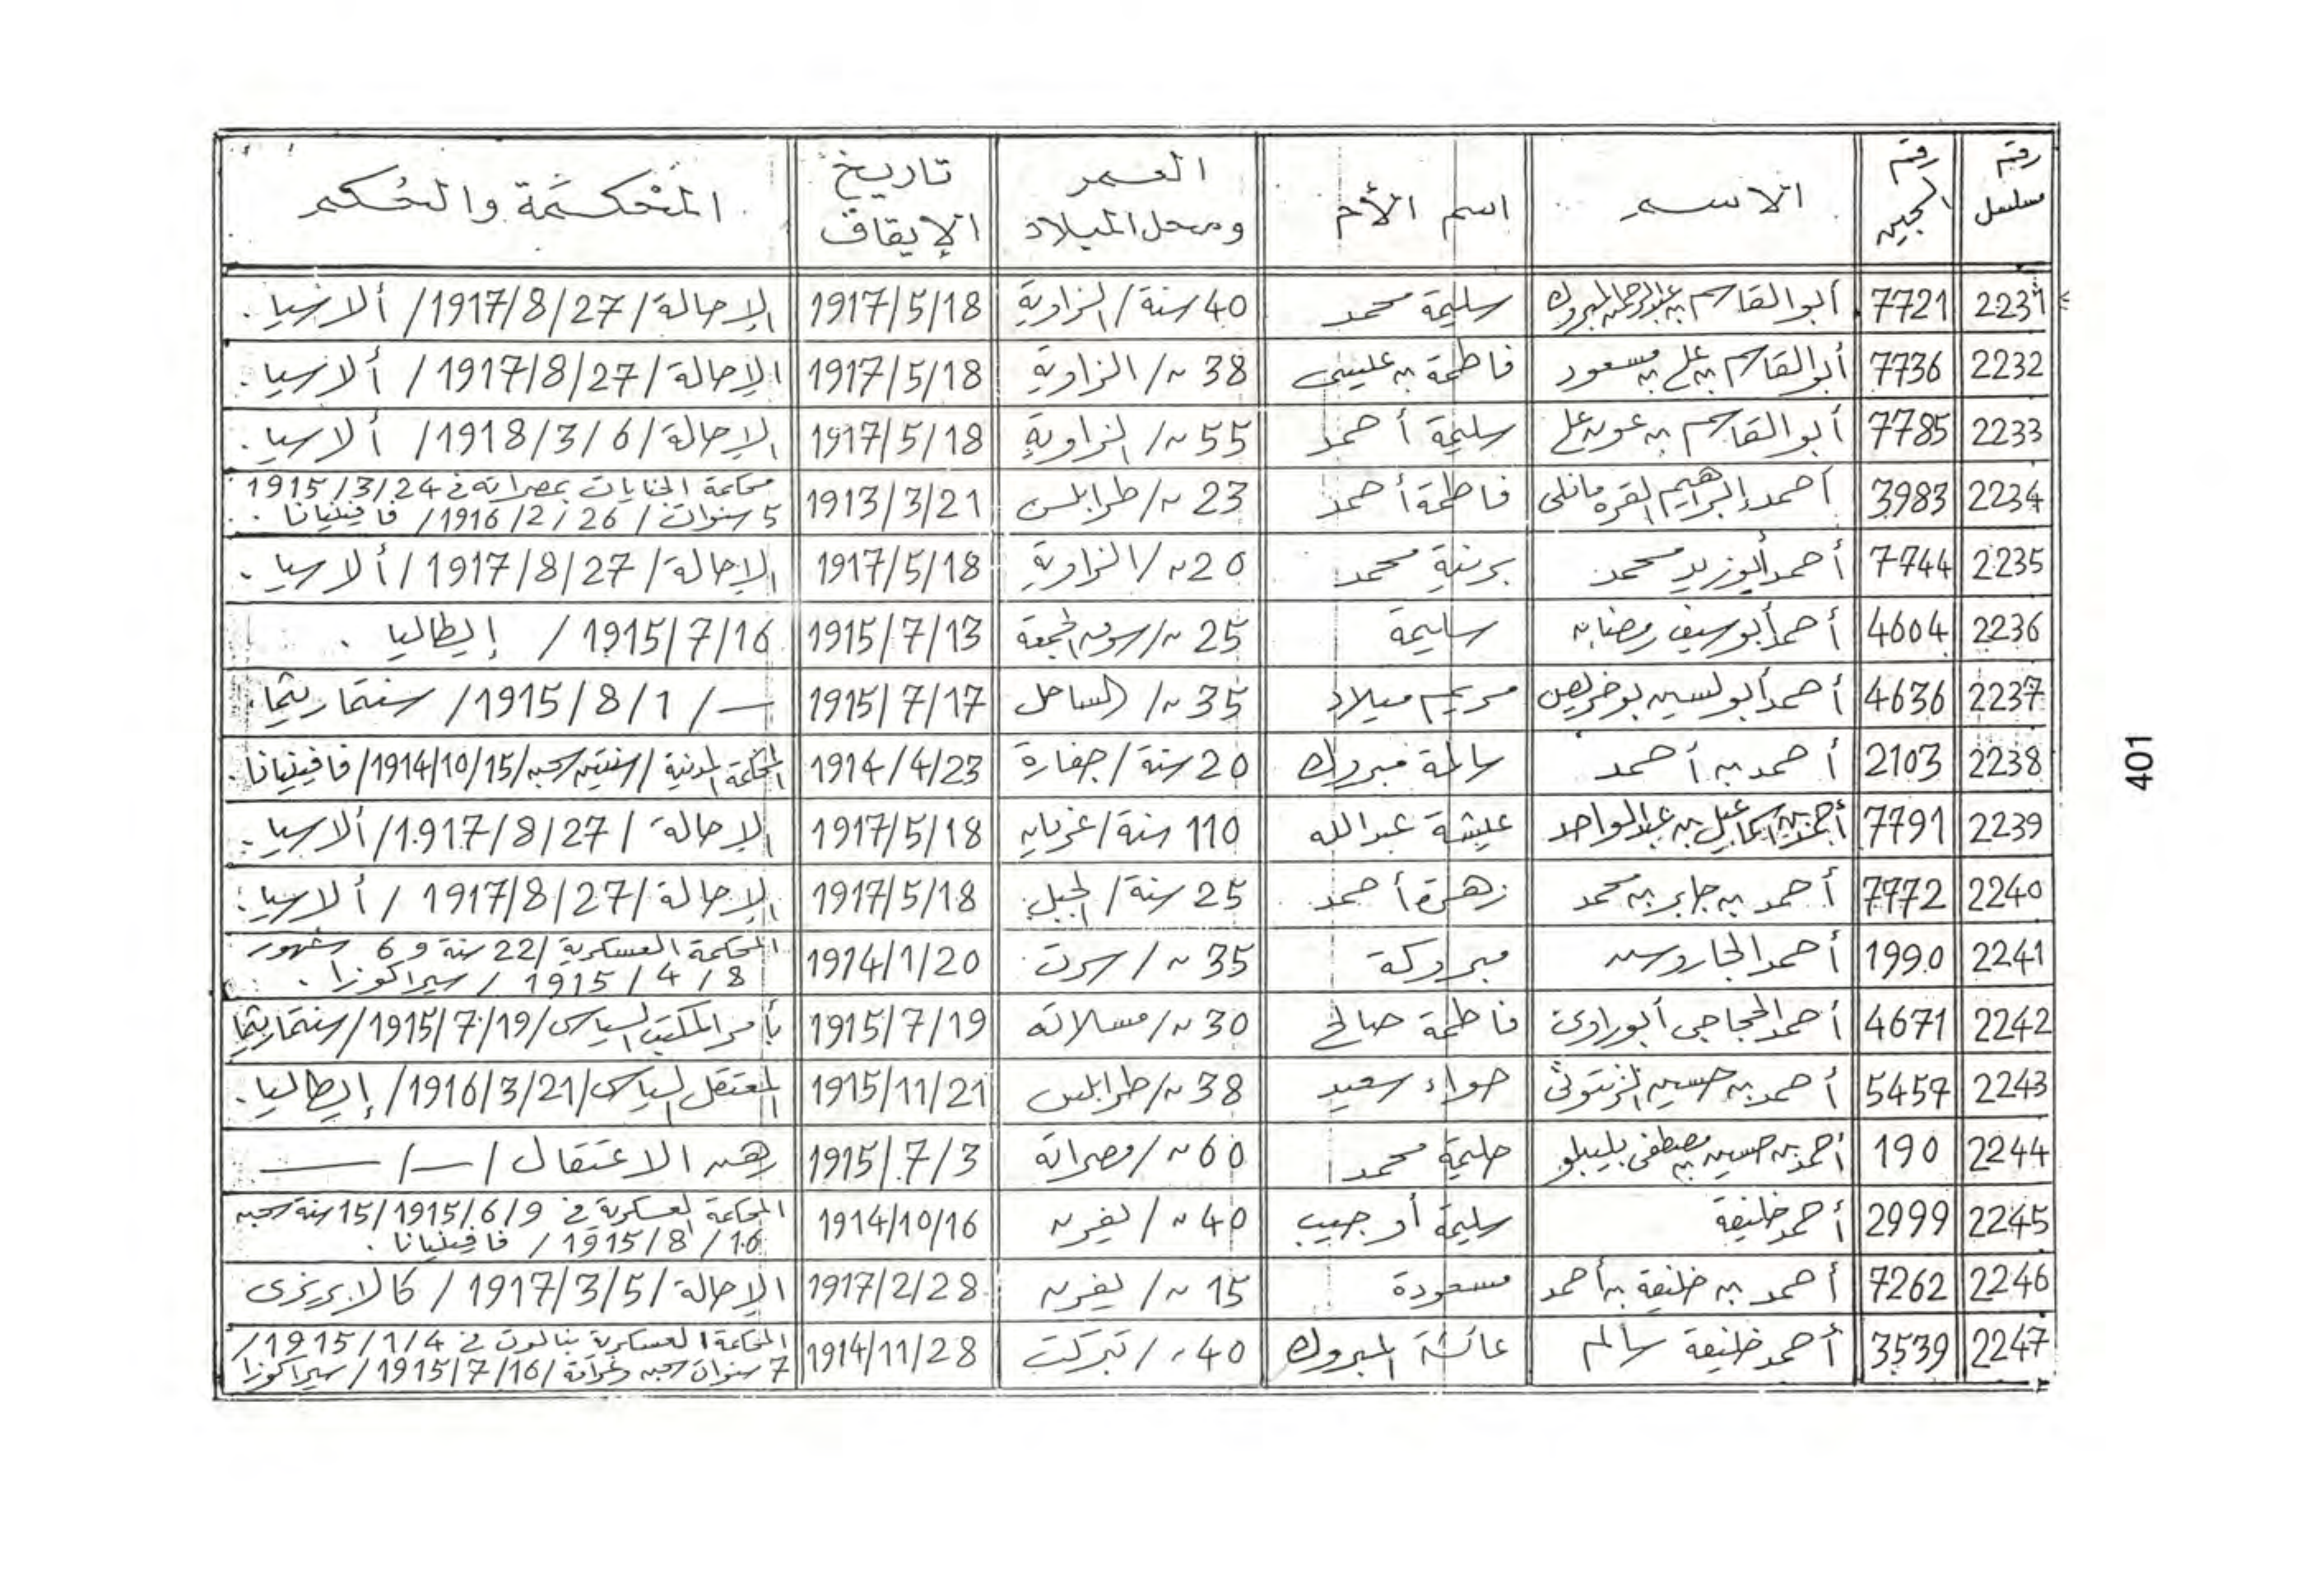 رقم مسلسل | رقم السجين | الاسم | اسم الأم | العمر ومحل الميلاد | تاريخ الإيقاف | المحكمة والحكم
2231 | 7721 | أبو القاسم بن عبدالرحمن المبروك | سليمة محمد | 40 سنة / الزاوية | 1917/5/18 | الإحالة / 1917/8/27 / ألا سيا .
2232 | 7736 | أبو القاسم بن علي بن مسعود | فاطمة بن عيسى | 38 ~ / الزاوية | 1917/5/18 | الإحالة / 1917/8/27 / ألا سيا .
2233 | 7785 | أبو القاسم بن عون علي | سليمة أحمد | 55 ~ / الزاوية | 1917/5/18 | الإحالة / 1918/3/6 / ألا سيا .
2234 | 3983 | أحمد إبراهيم القره مانلى | فاطمة أحمد | 23 ~ / طرابلس | 1913/3/21 | محكمة الجنايات بمصراته في 1915/3/24
5 سنوات / 1916/2/26 / فافينيانا .
2235 | 7744 | أحمد أبوزيد محمد | برنية محمد | 20 ~ / الزاوية | 1917/5/18 | الإحالة / 1917/8/27 / ألا سيا .
2236 | 4604 | أحمد أبو سيف رمضان | سليمة | 25 ~ / سوق الجمعة | 1915/7/13 | 1915/7/16 / إيطاليا .
2237 | 4636 | أحمد أبو لسين بوخريص | مريم ميلاد | 35 ~ / الساحل | 1915/7/17 | — / 1915/8/1 / سنتماريتما .
2238 | 2103 | أحمد بن أحمد | سالمة مبروك | 20 سنة / جفارة | 1914/4/23 | المحكمة المدنية / سنتين سجن / 1914/10/15 / فافينيانا .
2239 | 7791 | أحمد بن اسماعيل بن عبدالواحد | عيشة عبدالله | 110 سنة / غريان | 1917/5/18 | الإحالة / 1917/8/27 / ألا سيا .
2240 | 7772 | أحمد بن جابر بن محمد | زهرة أحمد | 25 سنة / الجبل | 1917/5/18 | الإحالة / 1917/8/27 / ألا سيا .
2241 | 1990 | أحمد الجاروس | مبروكة | 35 ~ / سرت | 1914/1/20 | المحكمة العسكرية / 22 سنة و 6 شهور
1915/4/8 / سيراكوزا .
2242 | 4671 | أحمد الحجاجى أبوراوى | فاطمة صالح | 30 ~ / مسلاته | 1915/7/19 | بأمر المكتب السياسى / 1915/7/19 / سنتماريتما
2243 | 5457 | أحمد بن حسين الزيتونى | حواء سعيد | 38 ~ / طرابلس | 1915/11/21 | المعتقل السياسى / 1916/3/21 / إيطاليا .
2244 | 190 | أحمد بن حسين بن مصطفى بليبلو | حليمة محمد | 60 ~ / مصراته | 1915/7/3 | رهن الاعتقال / — / —
2245 | 2999 | أحمد خليفة | سليمة أو حبيب | 40 ~ / يفرن | 1914/10/16 | المحكمة العسكرية في 1915/6/9 / 15 سنة سجن
1915/8/10 / فافينيانا .
2246 | 7262 | أحمد بن خليفة بن أحمد | مسعودة | 15 ~ / يفرن | 1917/2/28 | الإحالة / 1917/3/5 / كالابريزى
2247 | 3539 | أحمد خليفة سالم | عائشة المبروك | 40 ~ / تبركت | 1914/11/28 | المحكمة العسكرية بنالوت في 1915/1/4 /
7 سنوات سجن وغرامة / 1915/7/16 / سيراكوزا
401